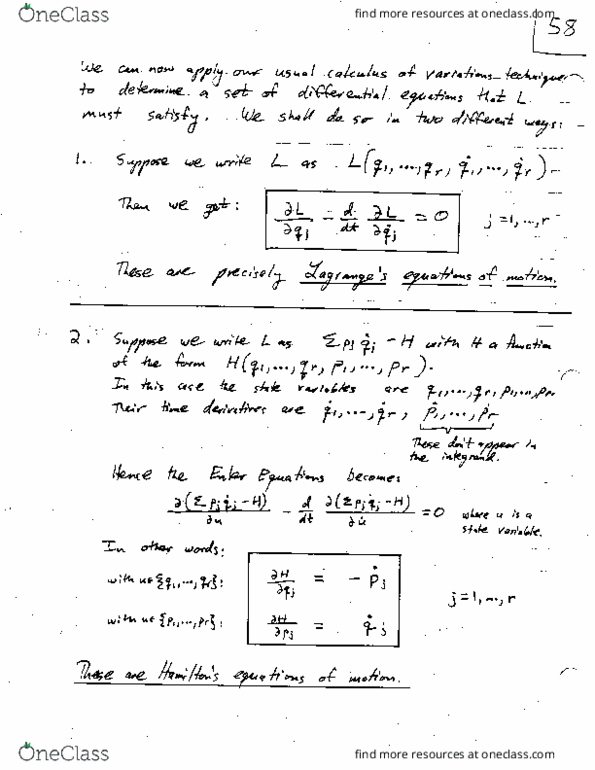 OneClass
find more resources at oneclass.com
58
We can now apply our usual calculus of variations techniques
to determine a set of differential equations that L
must satisfy. We shall do so in two different ways:
1. Suppose we write L as L(q₁,...,qᵣ, q̇₁,...,q̇ᵣ).
Then we get: ∂L/∂qⱼ - d/dt ∂L/∂q̇ⱼ = 0 j=1,...,r
These are precisely Lagrange's equations of motion.
2. Suppose we write L as Σpⱼq̇ⱼ - H with H a function
of the form H(q₁,...,qᵣ, p₁,...,pᵣ).
In this case the state variables are q₁,...,qᵣ, p₁,...,pᵣ.
Their time derivatives are q̇₁,...,q̇ᵣ, ṗ₁,...,ṗᵣ
These don't appear in
the integrand.
Hence the Euler Equations becomes:
∂(Σpⱼq̇ⱼ-H)/∂u - d/dt ∂(Σpⱼq̇ⱼ-H)/∂u̇ = 0 where u is a
state variable.
In other words:
with u∈{q₁,...,qᵣ}: ∂H/∂qⱼ = -ṗⱼ
j=1,...,r
with u∈{p₁,...,pᵣ}: ∂H/∂pⱼ = q̇ⱼ
These are Hamilton's equations of motion.
OneClass
find more resources at oneclass.com